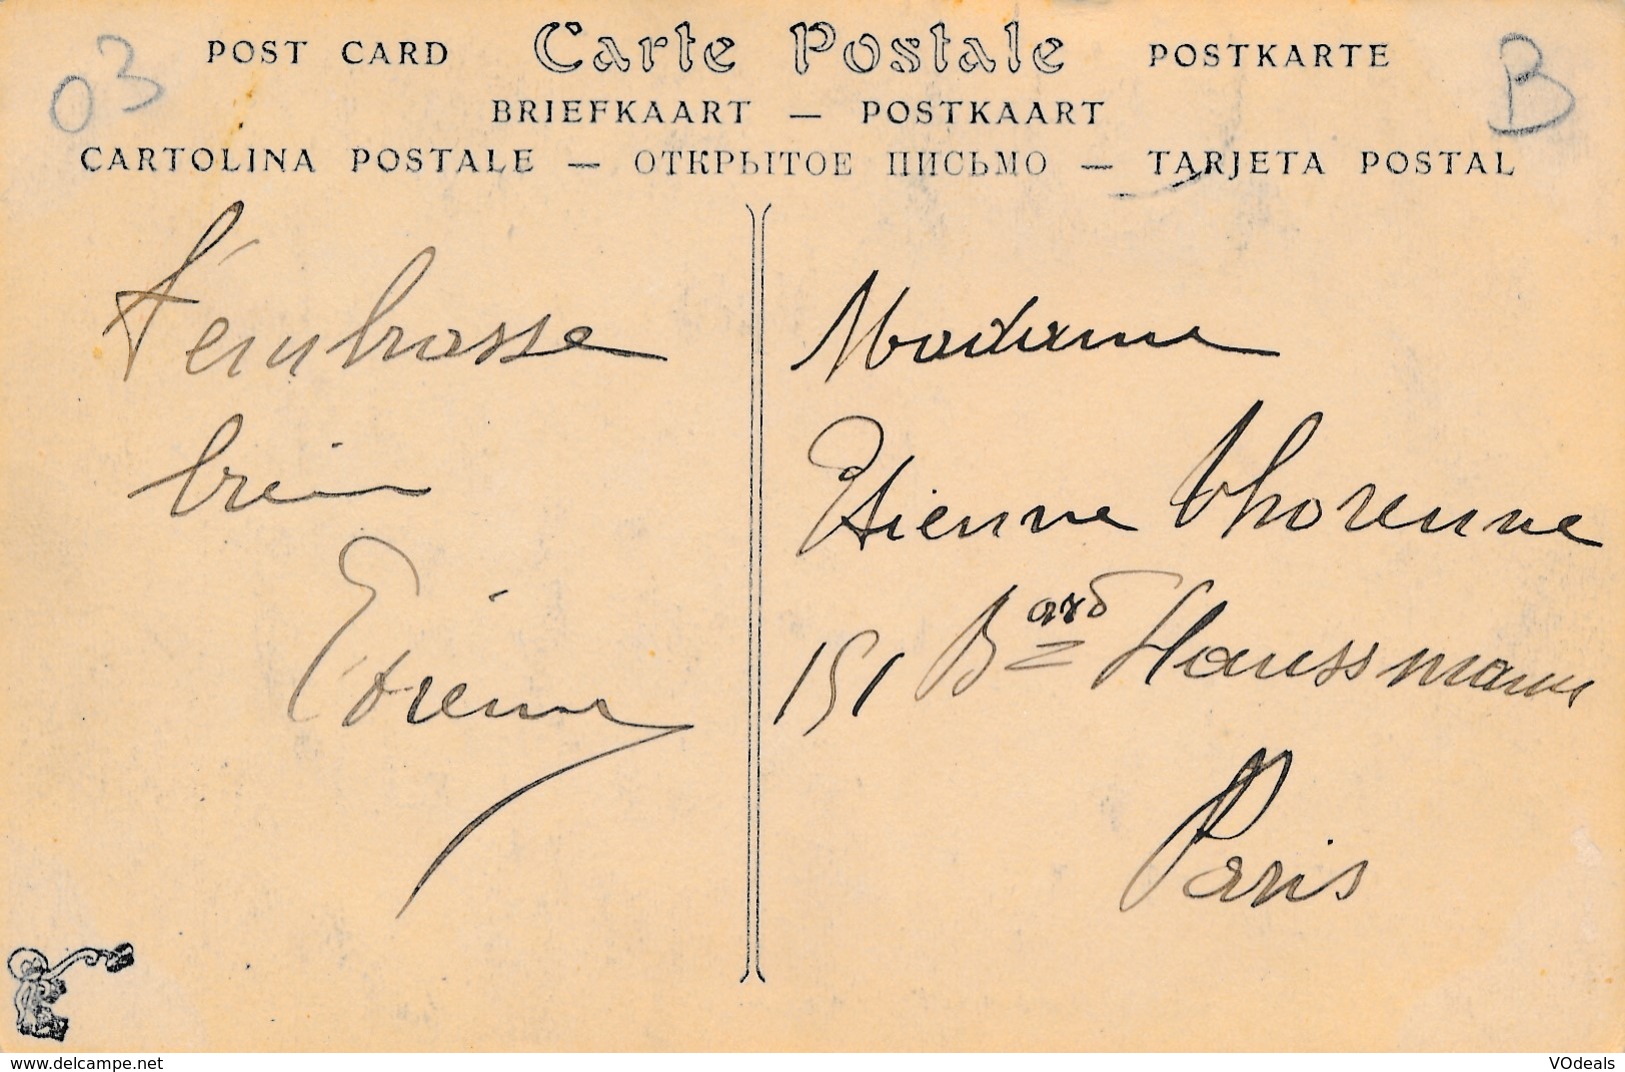 03
B
POST CARD Carte Postale POSTKARTE
BRIEFKAART — POSTKAART
CARTOLINA POSTALE — ОТКРЫТОЕ ПИСЬМО — TARJETA POSTAL
T'embrasse
bien
Etienne
Madame
Etienne Thorenne
151 Bard Haussmann
Paris
http://www.delcampe.net
VOdeals